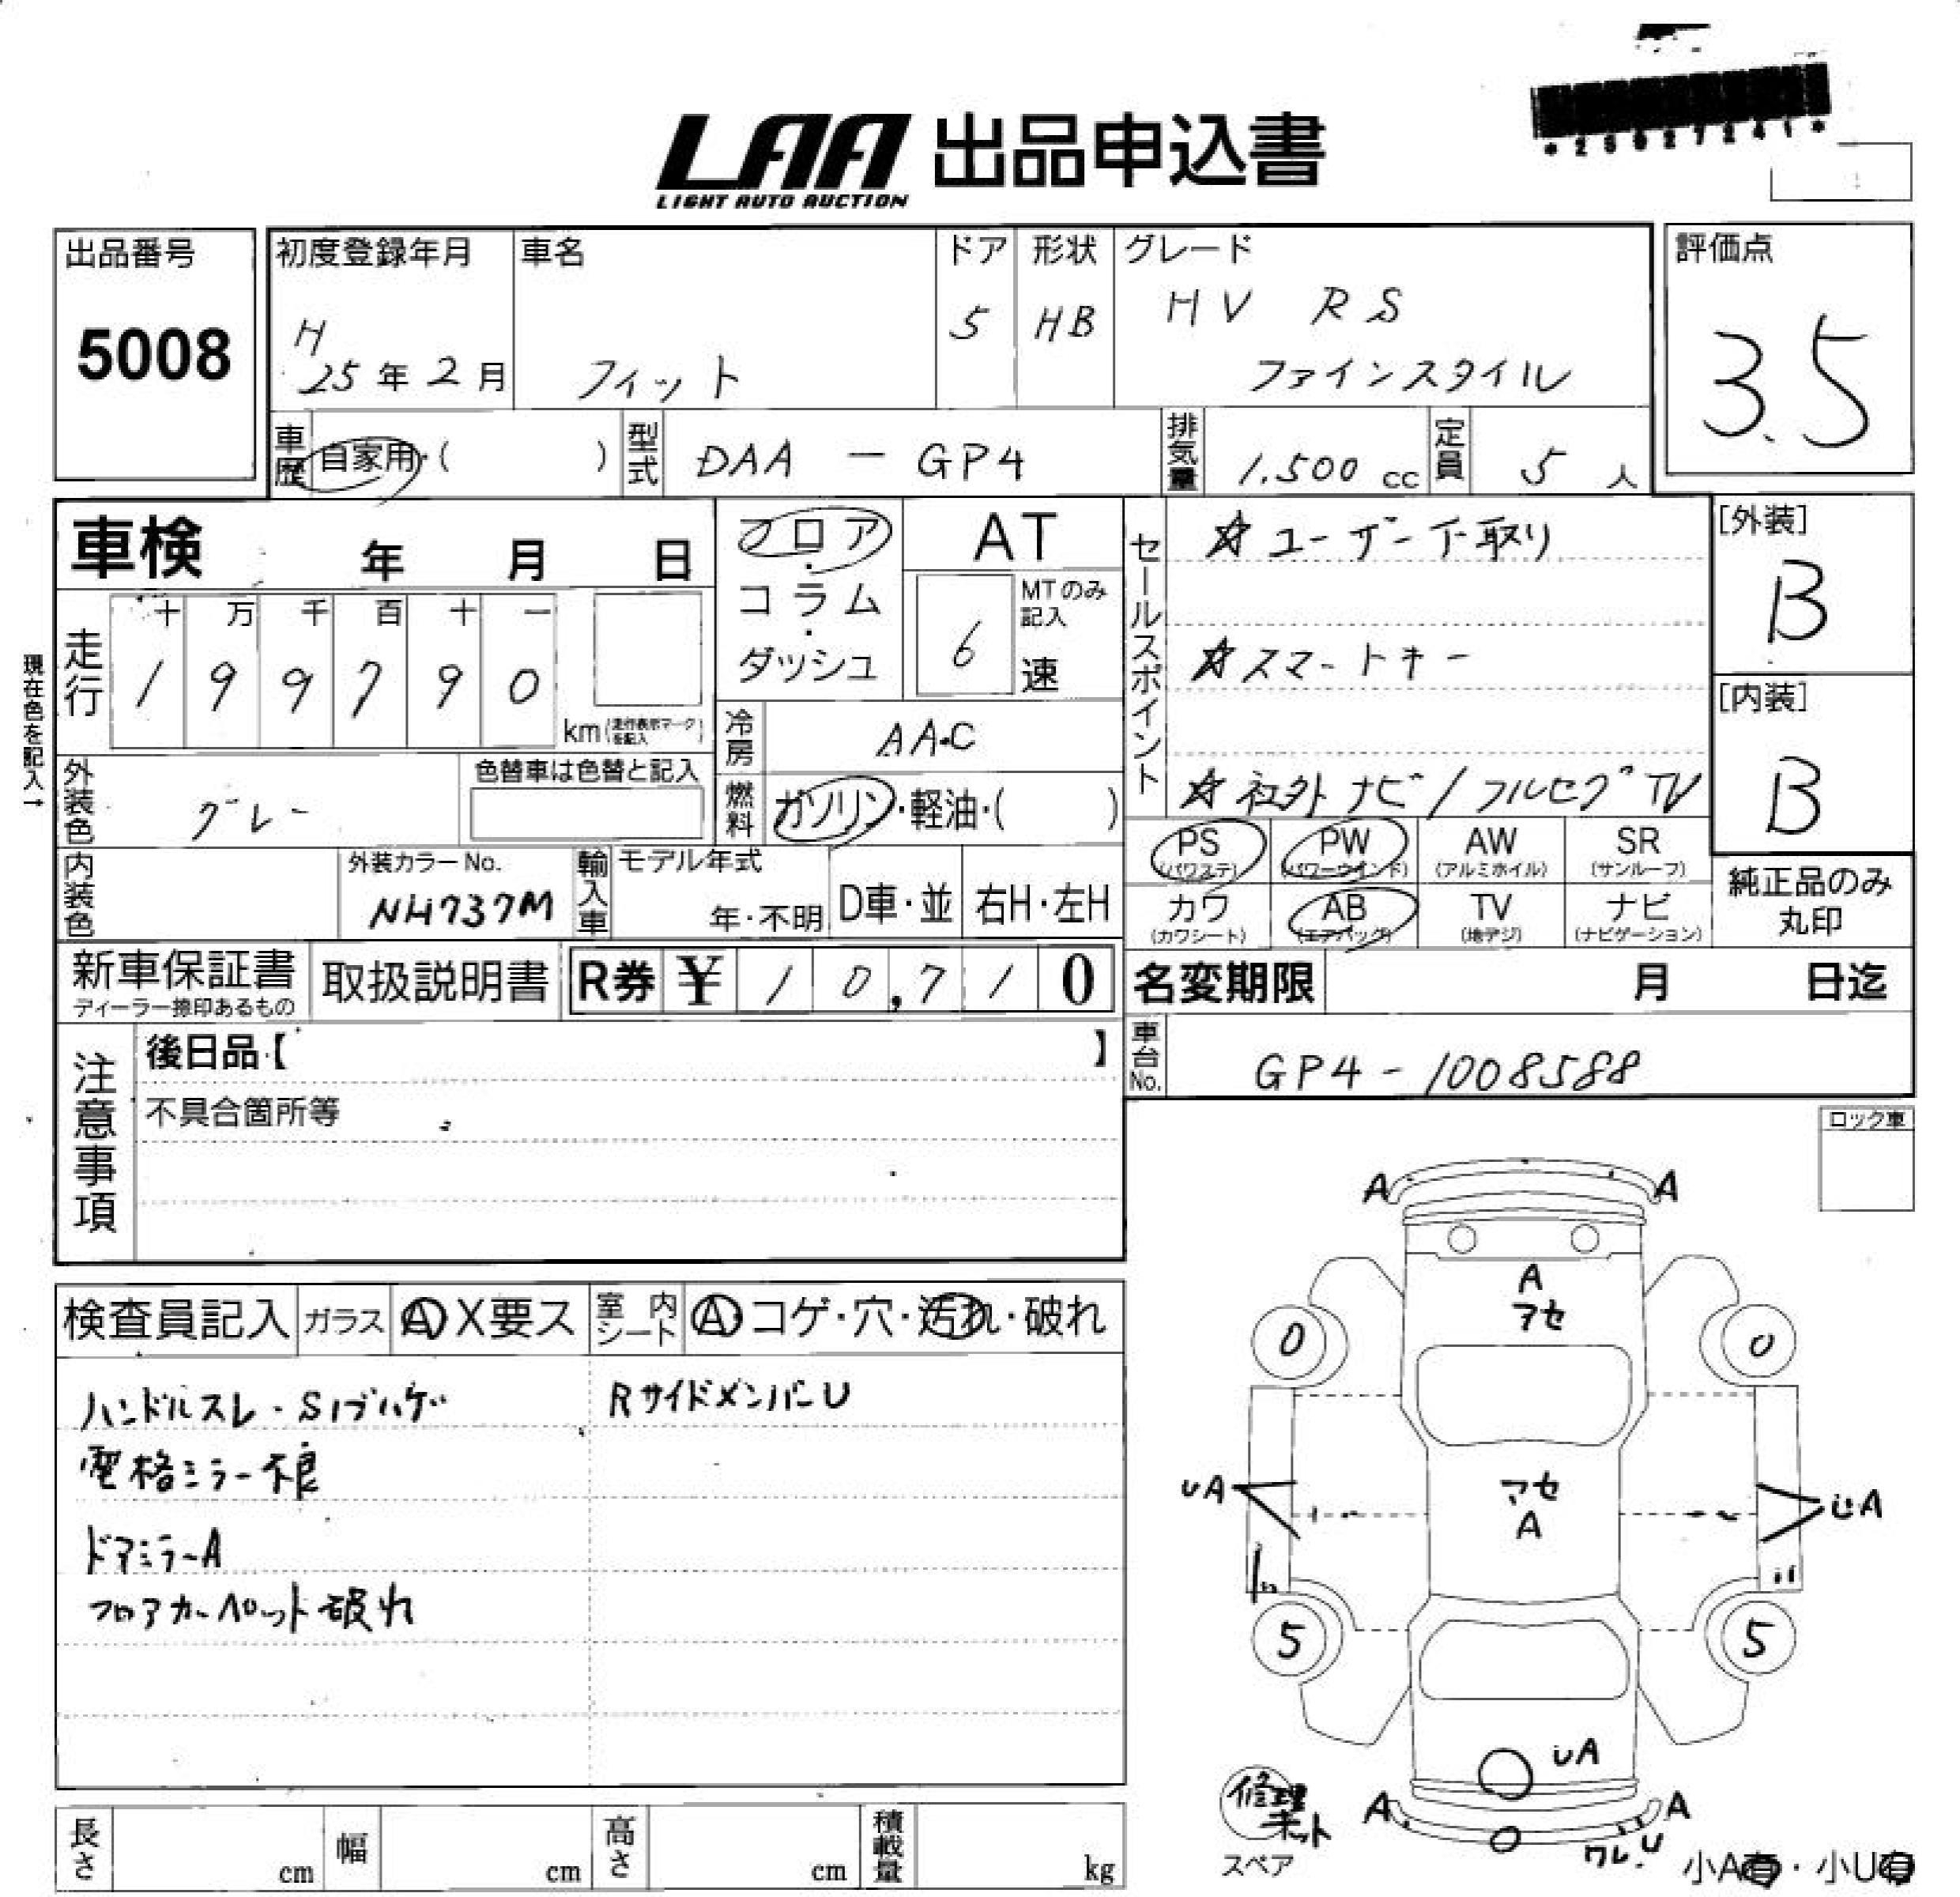 *25027241*
LAA 出品申込書
LIGHT AUTO AUCTION
出品番号
5008
初度登録年月
H
25年2月
車名
フィット
ドア
5
形状
HB
グレード
HV RS
ファインスタイル
評価点
3.5
車歴
自家用・( )
型式
DAA - GP4
排気量
1.500 cc
定員
5 人
車検 年 月 日
フロア・コラム・ダッシュ
AT
MTのみ記入
6 速
セールスポイント
☆ユーザー下取り
☆スマートキー
☆社外ナビ/フルセグTV
[外装]
B
[内装]
B
現在色を記入→
走行
十 万 千 百 十 一
1 9 9 7 9 0
km(走行表示マークを記入)
冷房
AAC
燃料
ガソリン・軽油・( )
外装色
グレー
色替車は色替と記入
内装色
外装カラーNo.
NH737M
輸入車
モデル年式
年・不明
D車・並
右H・左H
PS (パワステ)
PW (パワーウインド)
AW (アルミホイル)
SR (サンルーフ)
カワ (カワシート)
AB (エアバッグ)
TV (地デジ)
ナビ (ナビゲーション)
純正品のみ
丸印
新車保証書
ディーラー捺印あるもの
取扱説明書
R券 ¥ 10,710
名変期限 月 日迄
車台No.
GP4-1008588
注意事項
後日品【 】
不具合箇所等
ロック車
検査員記入
ガラス
A X要ス
室内シート
A・コゲ・穴・汚れ・破れ
ハンドルスレ・Sノブハゲ
RサイドメンバーU
電格ミラー不良
ドアミラーA
フロアカーペット破れ
A A
A
アセ
0 0
UA
アセ
A
UA
5 5
UA
A A
ワレ.U
修理キット
スペア
小A有・小U有
長さ cm
幅 cm
高さ cm
積載量 kg